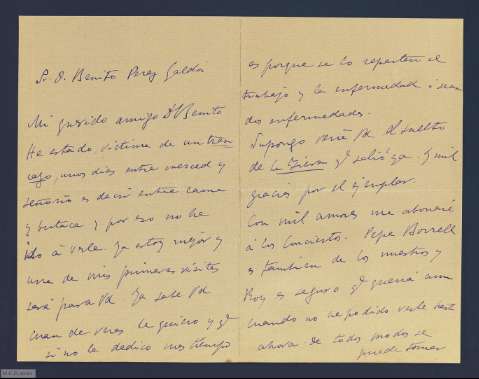 S. D. Benito Perez Galdós
Mi querido amigo D Benito
He estado, victima de un tran
cazo, unos dias entre merced y
señoria es decir entre cama
y butaca y por eso no he
ido á verle. Ya estoy mejor y
una de mis primeras visitas
será para Vd Ya sabe Vd
cuan de veras le quiero y qe
si no le dedico mas tiempo
es porque se lo reparten el
trabajo y la enfermedad ó sean
dos enfermedades.
Supongo Vd el suelto
de la qe salió ya. Y mil
gracias por el ejemplar.
Con mil amores me abonaré
á los Concierto. Pepe Borrell
es tambien de los nuestros y
Roy es seguro qe querrá aun
cuando no he podido verle hasta
ahora de todos modos se
puede tomar